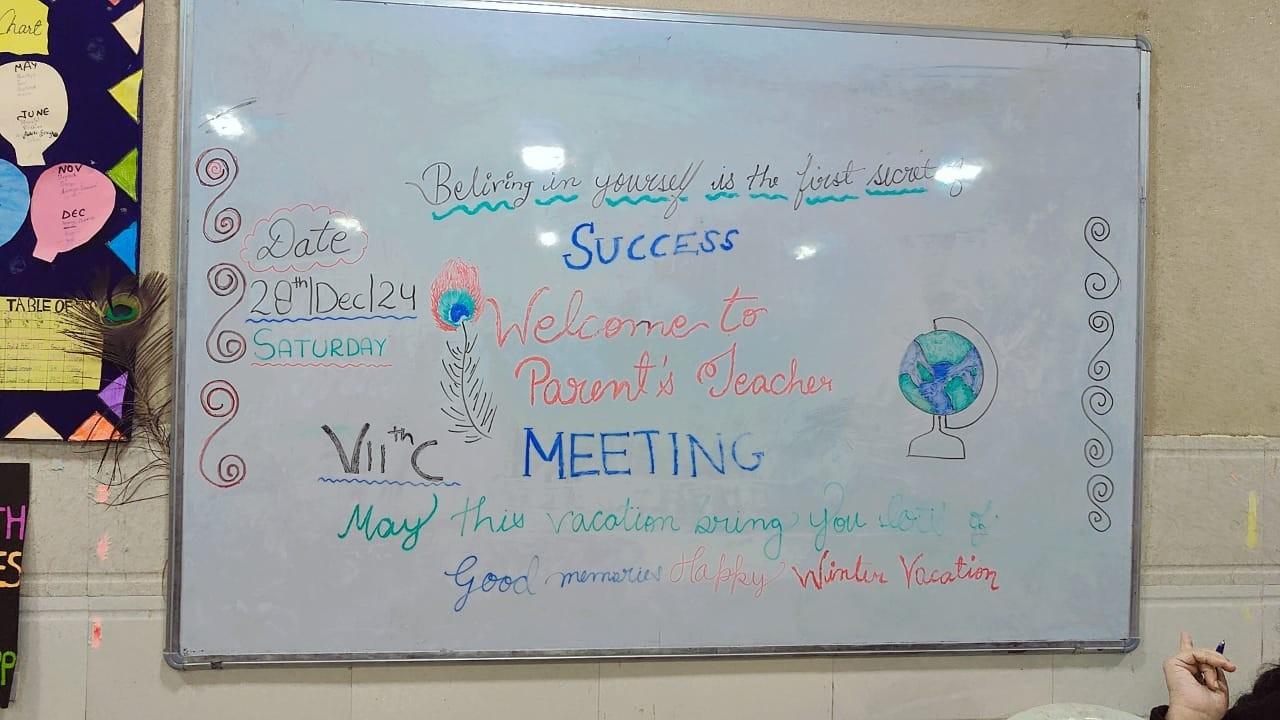 Chart
MAY
JUNE
NOV
DEC
TABLE OF
TH
ES
PP
Beliving in yourself is the first secret of
SUCCESS
Date
28th|Dec|24
SATURDAY
Welcome to
Parent's Teacher
MEETING
VIIth C
May this vacation bring you lots of
Good memories Happy Winter Vacation